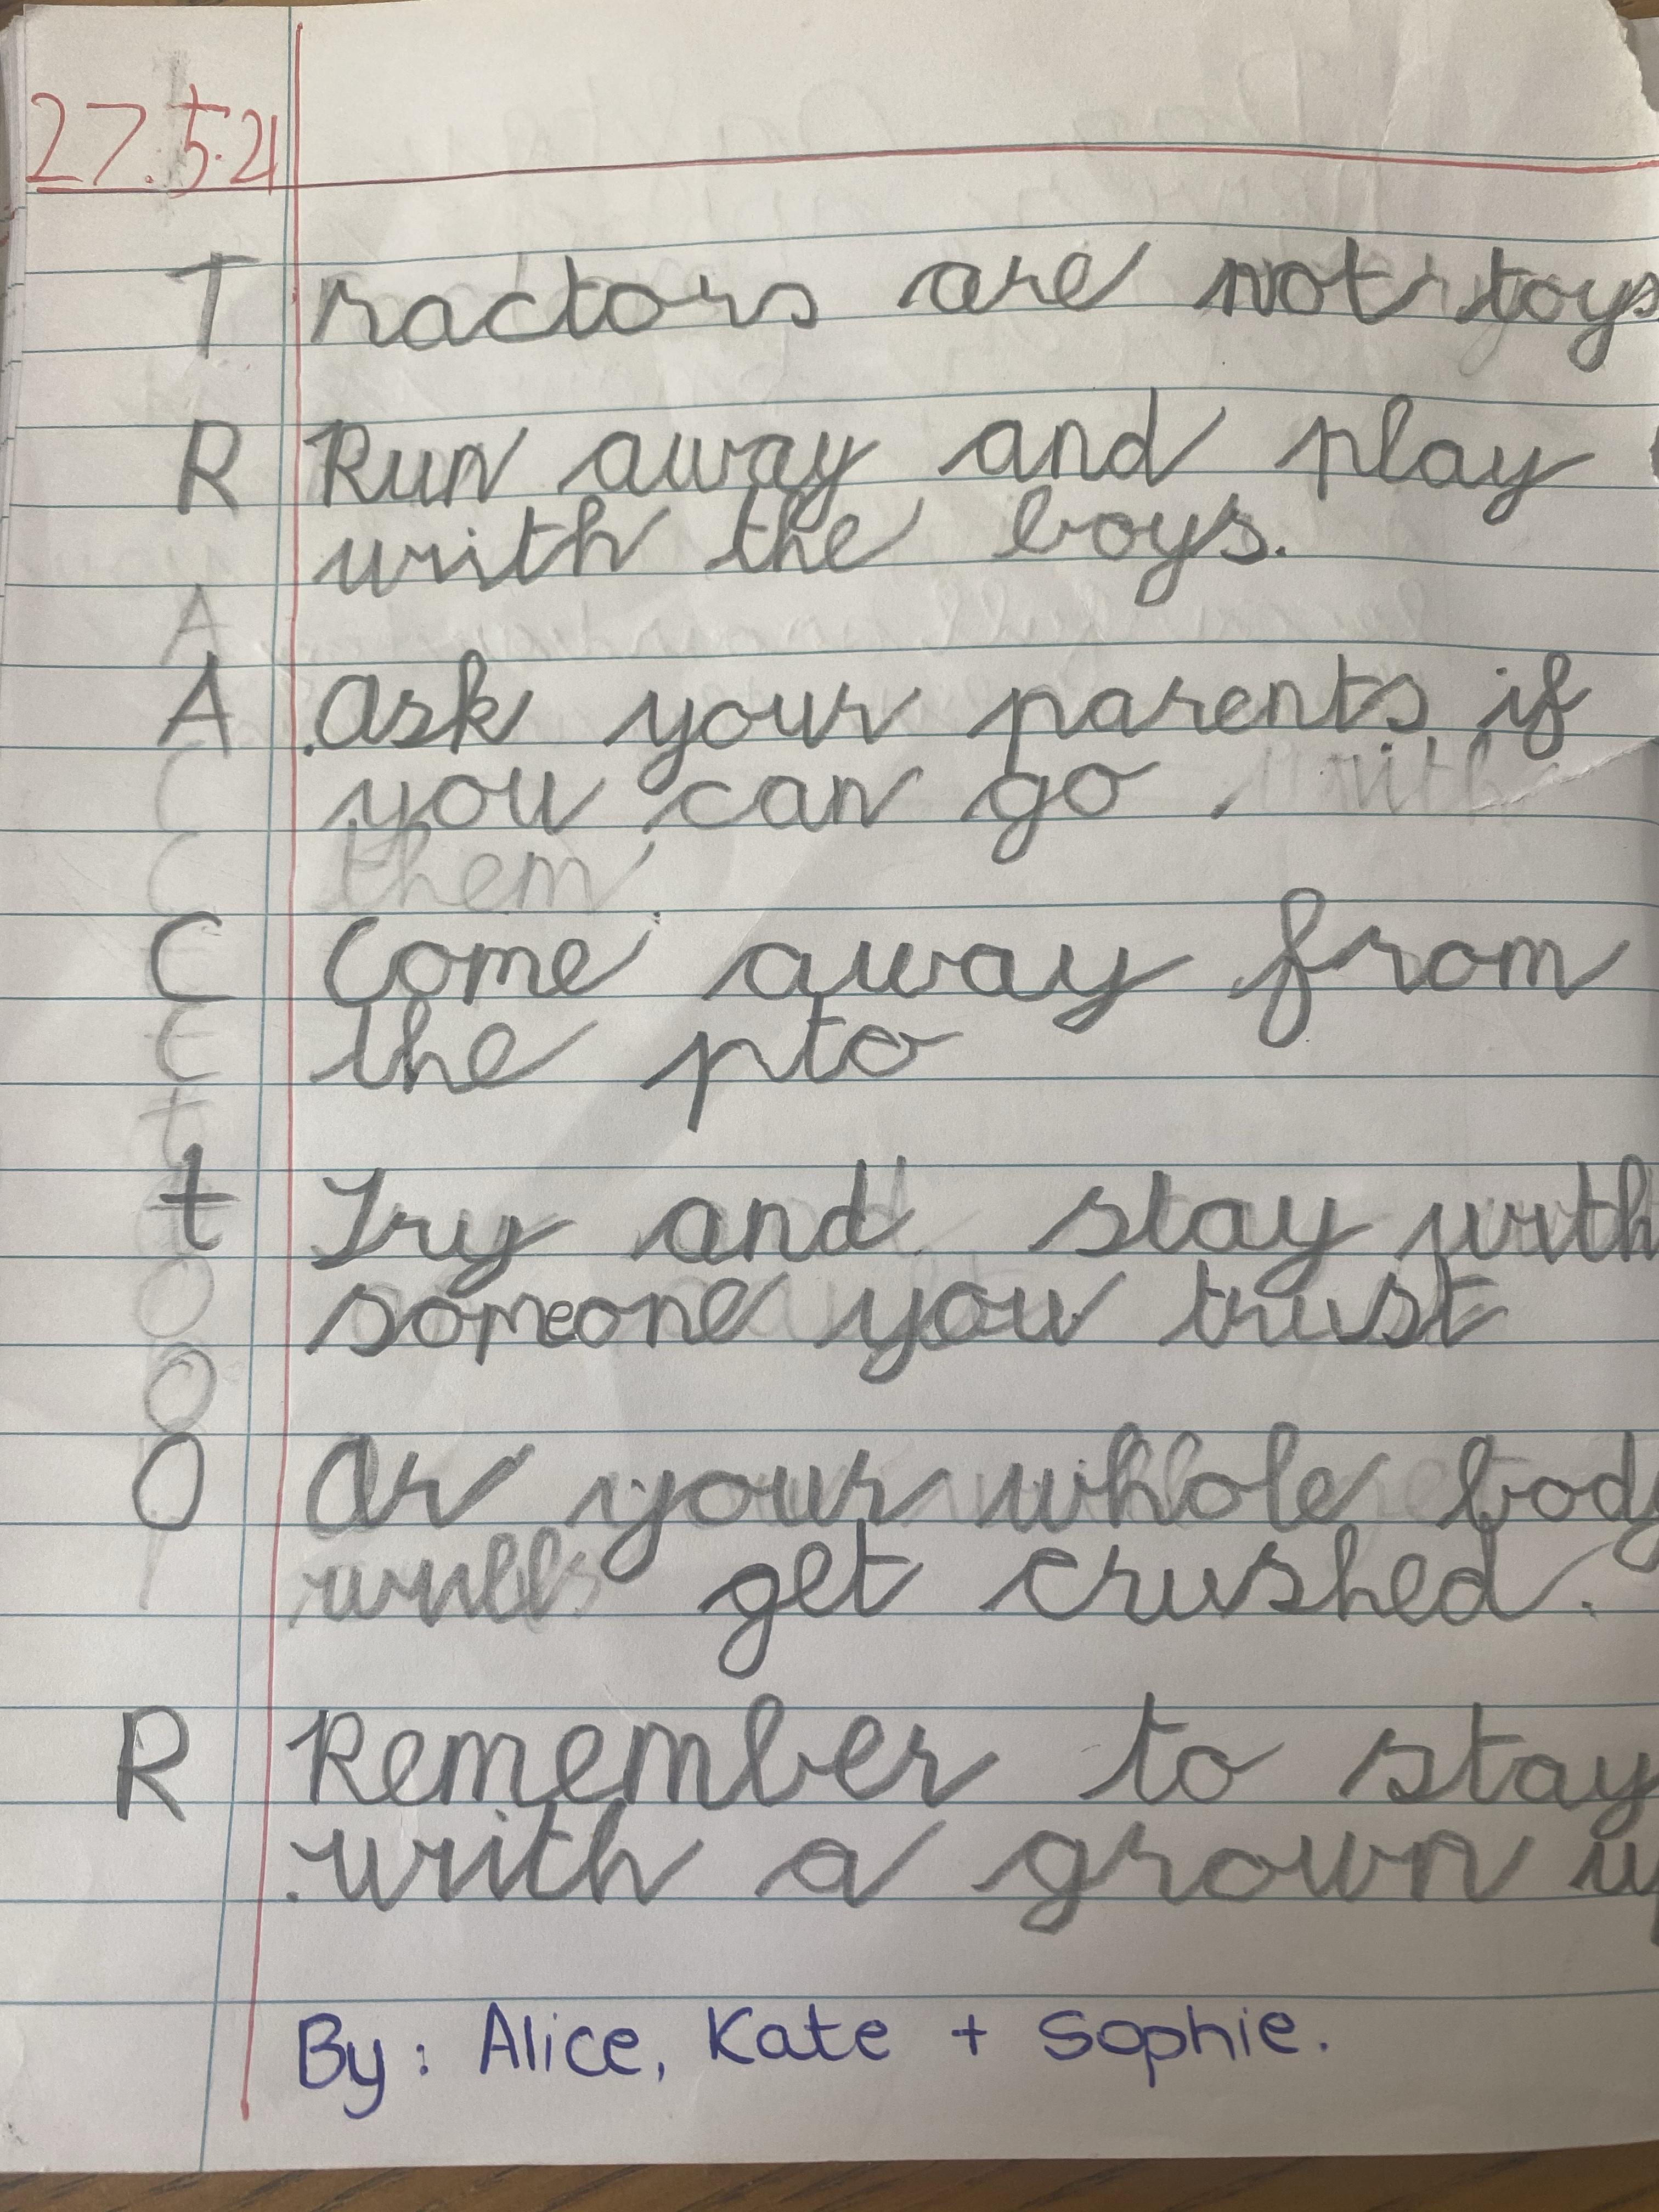 27.5.21
T ractors are not toys
R Run away and play
with the boys.
A Ask your parents if
you can go with
them
C Come away from
the pto
t Try and stay with
someone you trust
O Or your whole body
will get crushed.
R Remember to stay
with a grown up
By: Alice, Kate + Sophie.